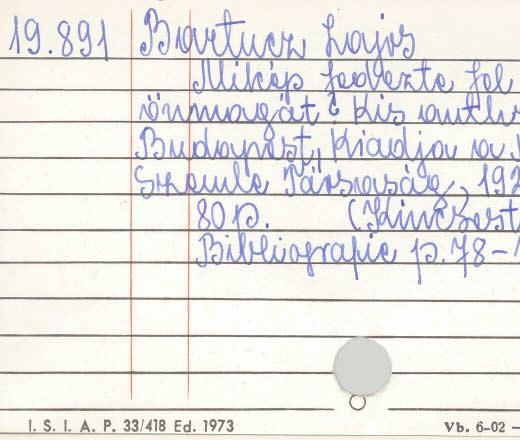 19.891 Bartucz Lajos
Mikép fedezte fel
önmagát? Kis anth
Budapest, Kiadja a
Szemle Társaság, 192
80 p. (Kincsest
Bibliografie p. 78-
I. S. I. A. P. 33/418 Ed. 1973 Vb. 6-02 -